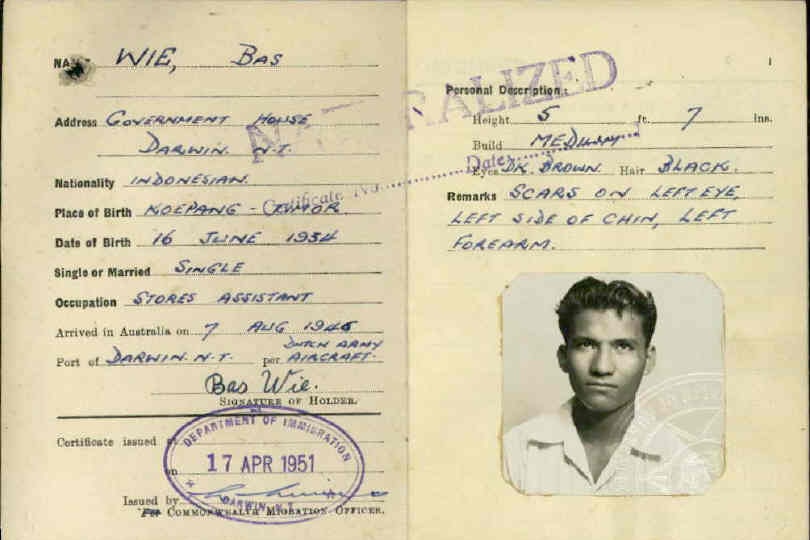 NAME WIE, BAS
Address GOVERNMENT HOUSE
DARWIN. N.T.
Nationality INDONESIAN.
Place of Birth KOEPANG - TIMOR
Date of Birth 16 JUNE 1934
Single or Married SINGLE
Occupation STORES ASSISTANT
Arrived in Australia on 7 AUG 1946
Port of DARWIN. N.T. per DUTCH ARMY AIRCRAFT.
Bas Wie.
SIGNATURE OF HOLDER.
Certificate issued at
on
DEPARTMENT OF IMMIGRATION
17 APR 1951
DARWIN, N.T.
Issued by
For COMMONWEALTH MIGRATION OFFICER.
NATURALIZED
Certificate No. Date
1
Personal Description:
Height 5 ft. 7 ins.
Build MEDIUM
Eyes DK. BROWN. Hair BLACK.
Remarks SCARS ON LEFT EYE,
LEFT SIDE OF CHIN, LEFT
FOREARM.